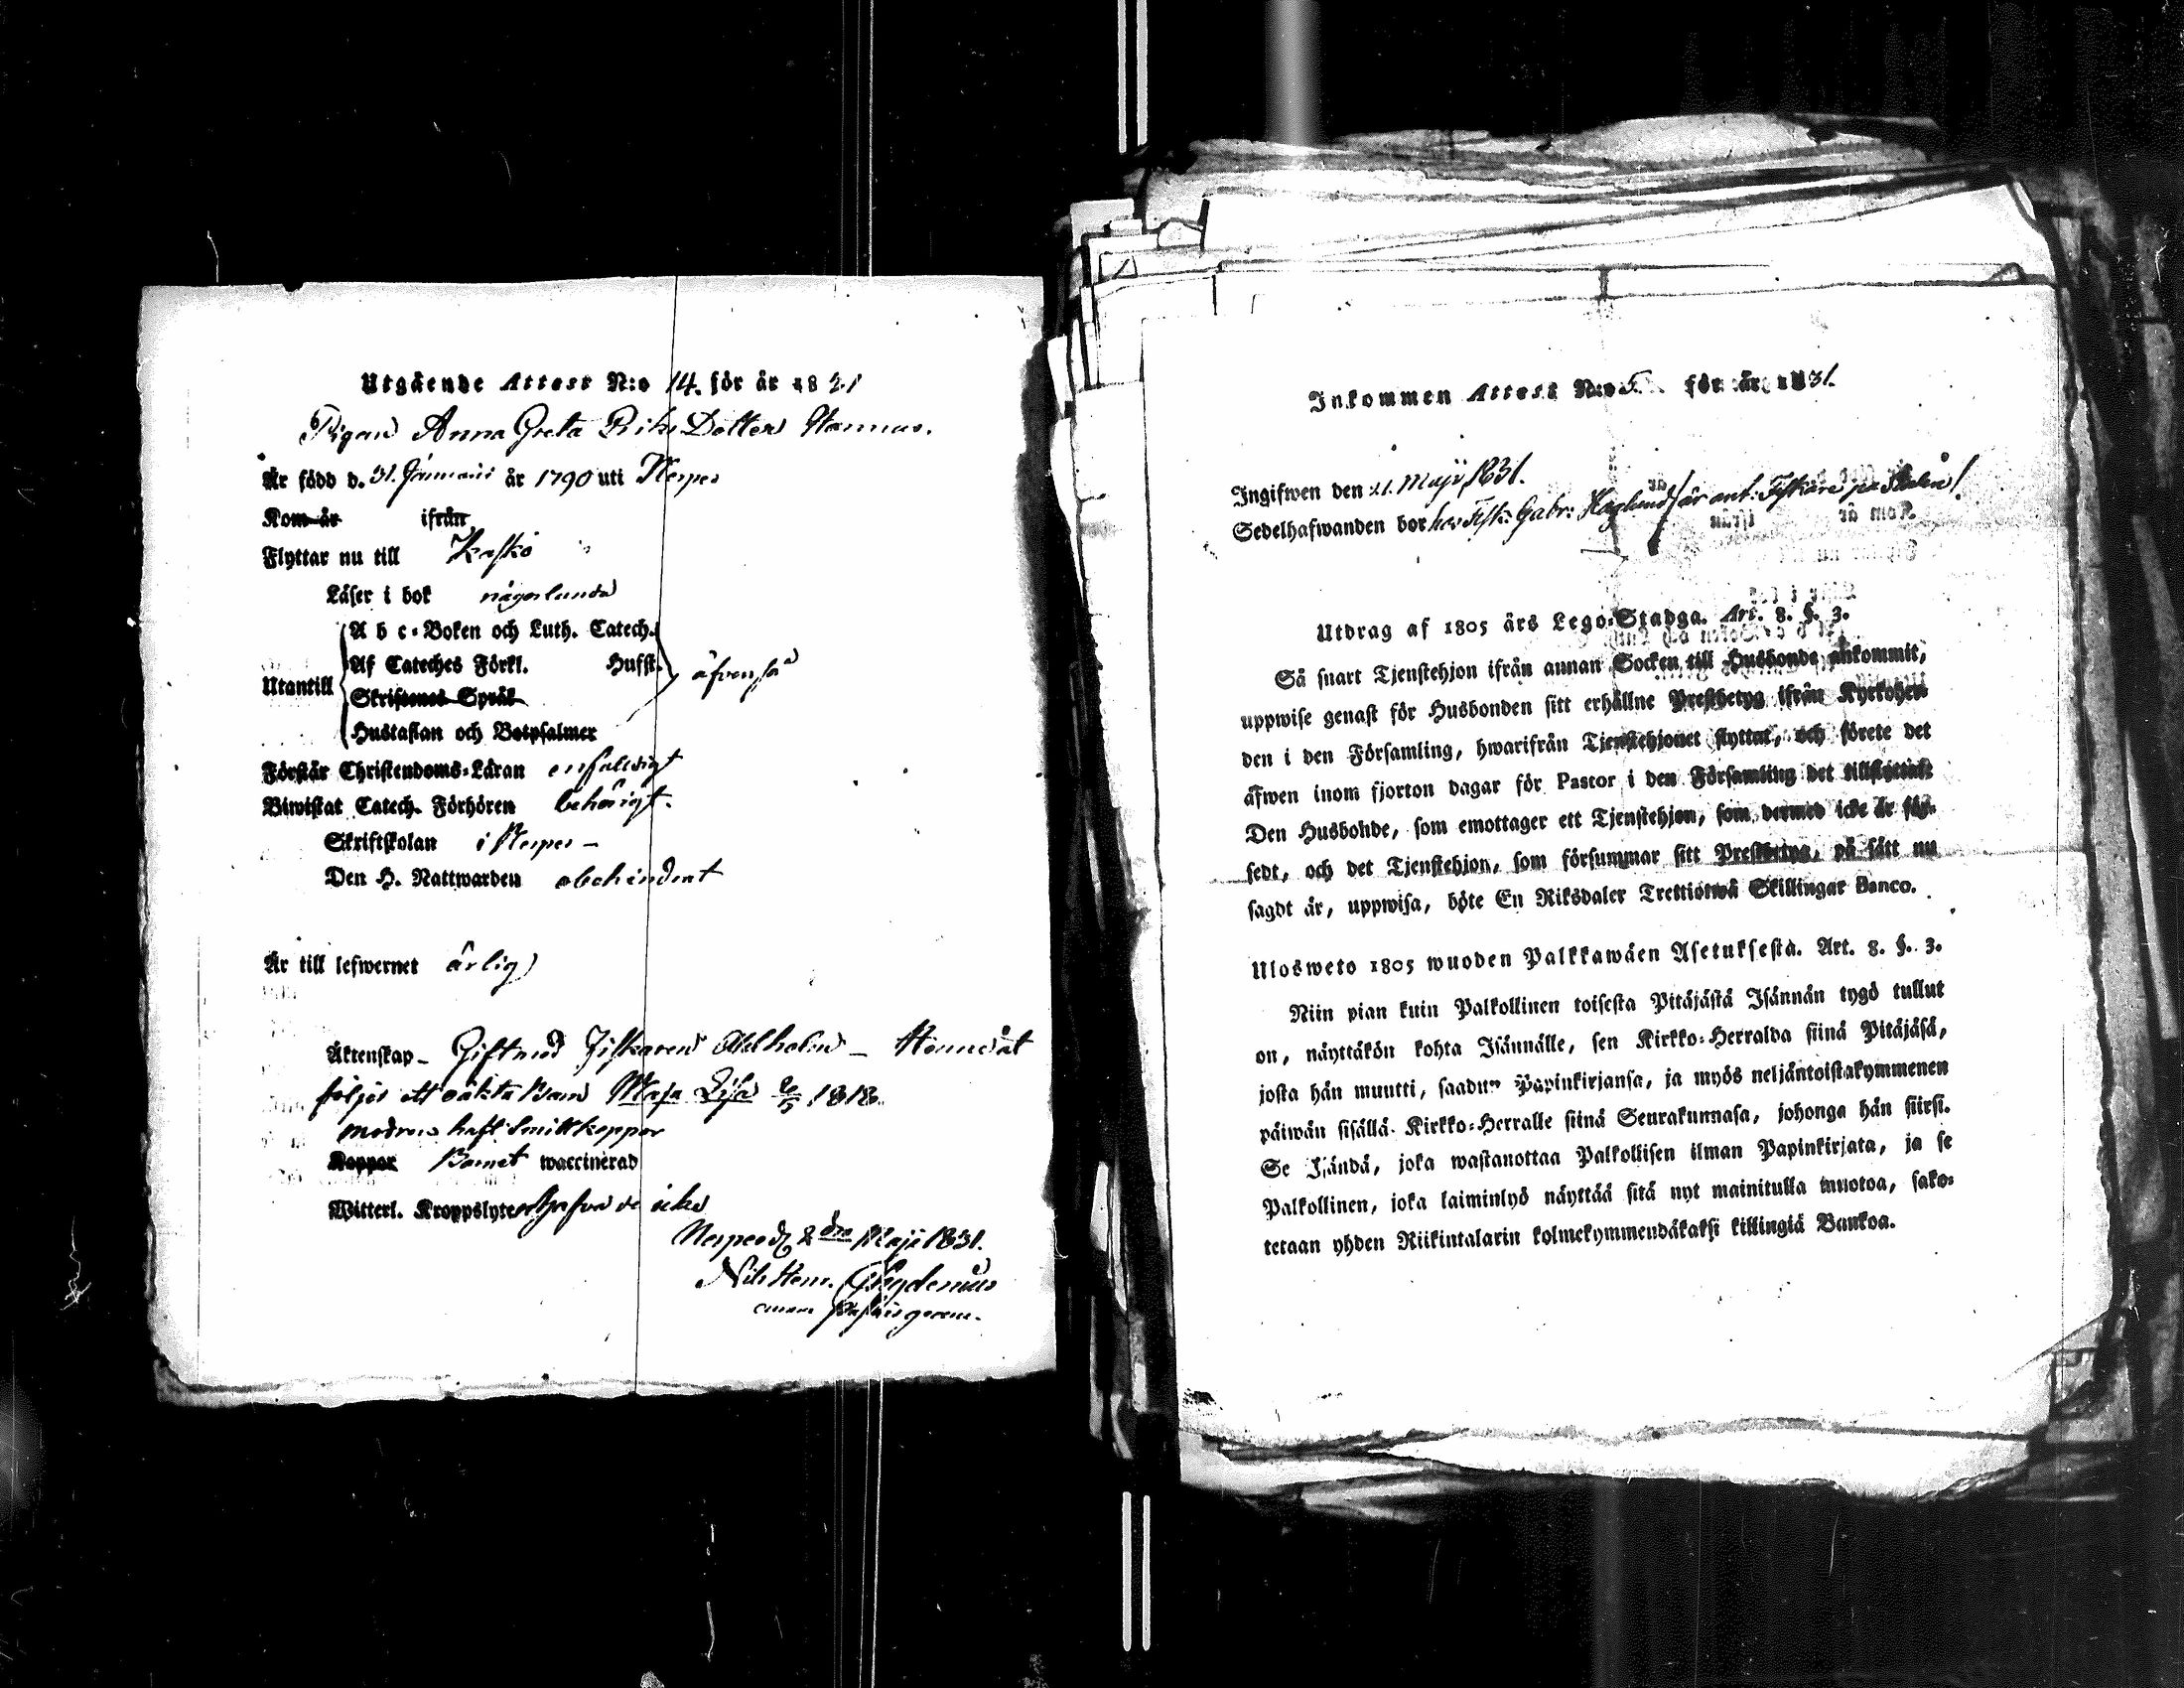 Utgående Attest N:o 14. för år 1831
Pigan Anna Greta Eriks Dotter Hannus.
Är född d. 31. Januarii år 1790 uti Nerpes
Kom år ifrån
Flyttar nu till Kaskö
Läser i bok någorlunda
Utantill
A b c-Boken och Luth. Catech.
Af Cateches Förkl. Hufst. äfvenså
Skriftenes Språk
Hustaflan och Botpsalmer
Förstår Christendoms-Läran enfaldigt
Biwistat Catech. Förhören behörigt.
Skriftskolan i Nerpes –
Den H. Nattwarden obehindrat
Är till lefwernet ärlig
Äktenskap – Gift med Fiskaren Ahlholm – Henne åt
följer ett oäkta Barn Maja Lisa 1818.
modren haft Smittkoppor
Koppor Barnet waccinerad
Witterl. Kroppslyten hafva de icke
Nerpes d. 2dra Maji 1831.
Nils Henr. Chydenius
Inkommen Attest N:o 5. för år 1831.
Ingifwen den 21. Maji 1831.
Sedelhafwanden bor hos Fisk: Gabr: Haglund / är ant: Fiskare på Skälen /.
Utdrag af 1805 års Lego-Stadga. Art. 8. §. 3.
Så snart Tjenstehjon ifrån annan Socken till Husbonde ankommit,
uppwise genast för Husbonden sitt erhållne Prestbetyg ifrån Kyrkoher-
den i den Församling, hwarifrån Tjenstehjonet flyttat, och förete det
äfwen inom fjorton dagar för Pastor i den Församling det tillflyttat.
Den Husbonde, som emottager ett Tjenstehjon, som dermed icke är för-
sedt, och det Tjenstehjon, som försummar sitt Prestbetyg, på sätt nu
sagdt är, uppwisa, böte En Riksdaler Trettiotwå Skillingar Banco.
Ulosweto 1805 wuoden Palkkawäen Asetuksesta. Art. 8. §. 3.
Niin pian kuin Palkollinen toisesta Pitäjästä Isännän tygö tullut
on, näyttäkön kohta Isännälle, sen Kirkko-Herralda siinä Pitäjäsä,
josta hän muutti, saadun Papinkirjansa, ja myös neljäntoistakymmenen
päiwän sisällä Kirkko-Herralle siinä Seurakunnasa, johonga hän siirsi.
Se Isändä, joka wastanottaa Palkollisen ilman Papinkirjata, ja se
Palkollinen, joka laiminlyö näyttää sitä nyt mainitulla muotoa, sako-
tetaan yhden Riikintalarin kolmekymmendäkaksi killingiä Bankoa.